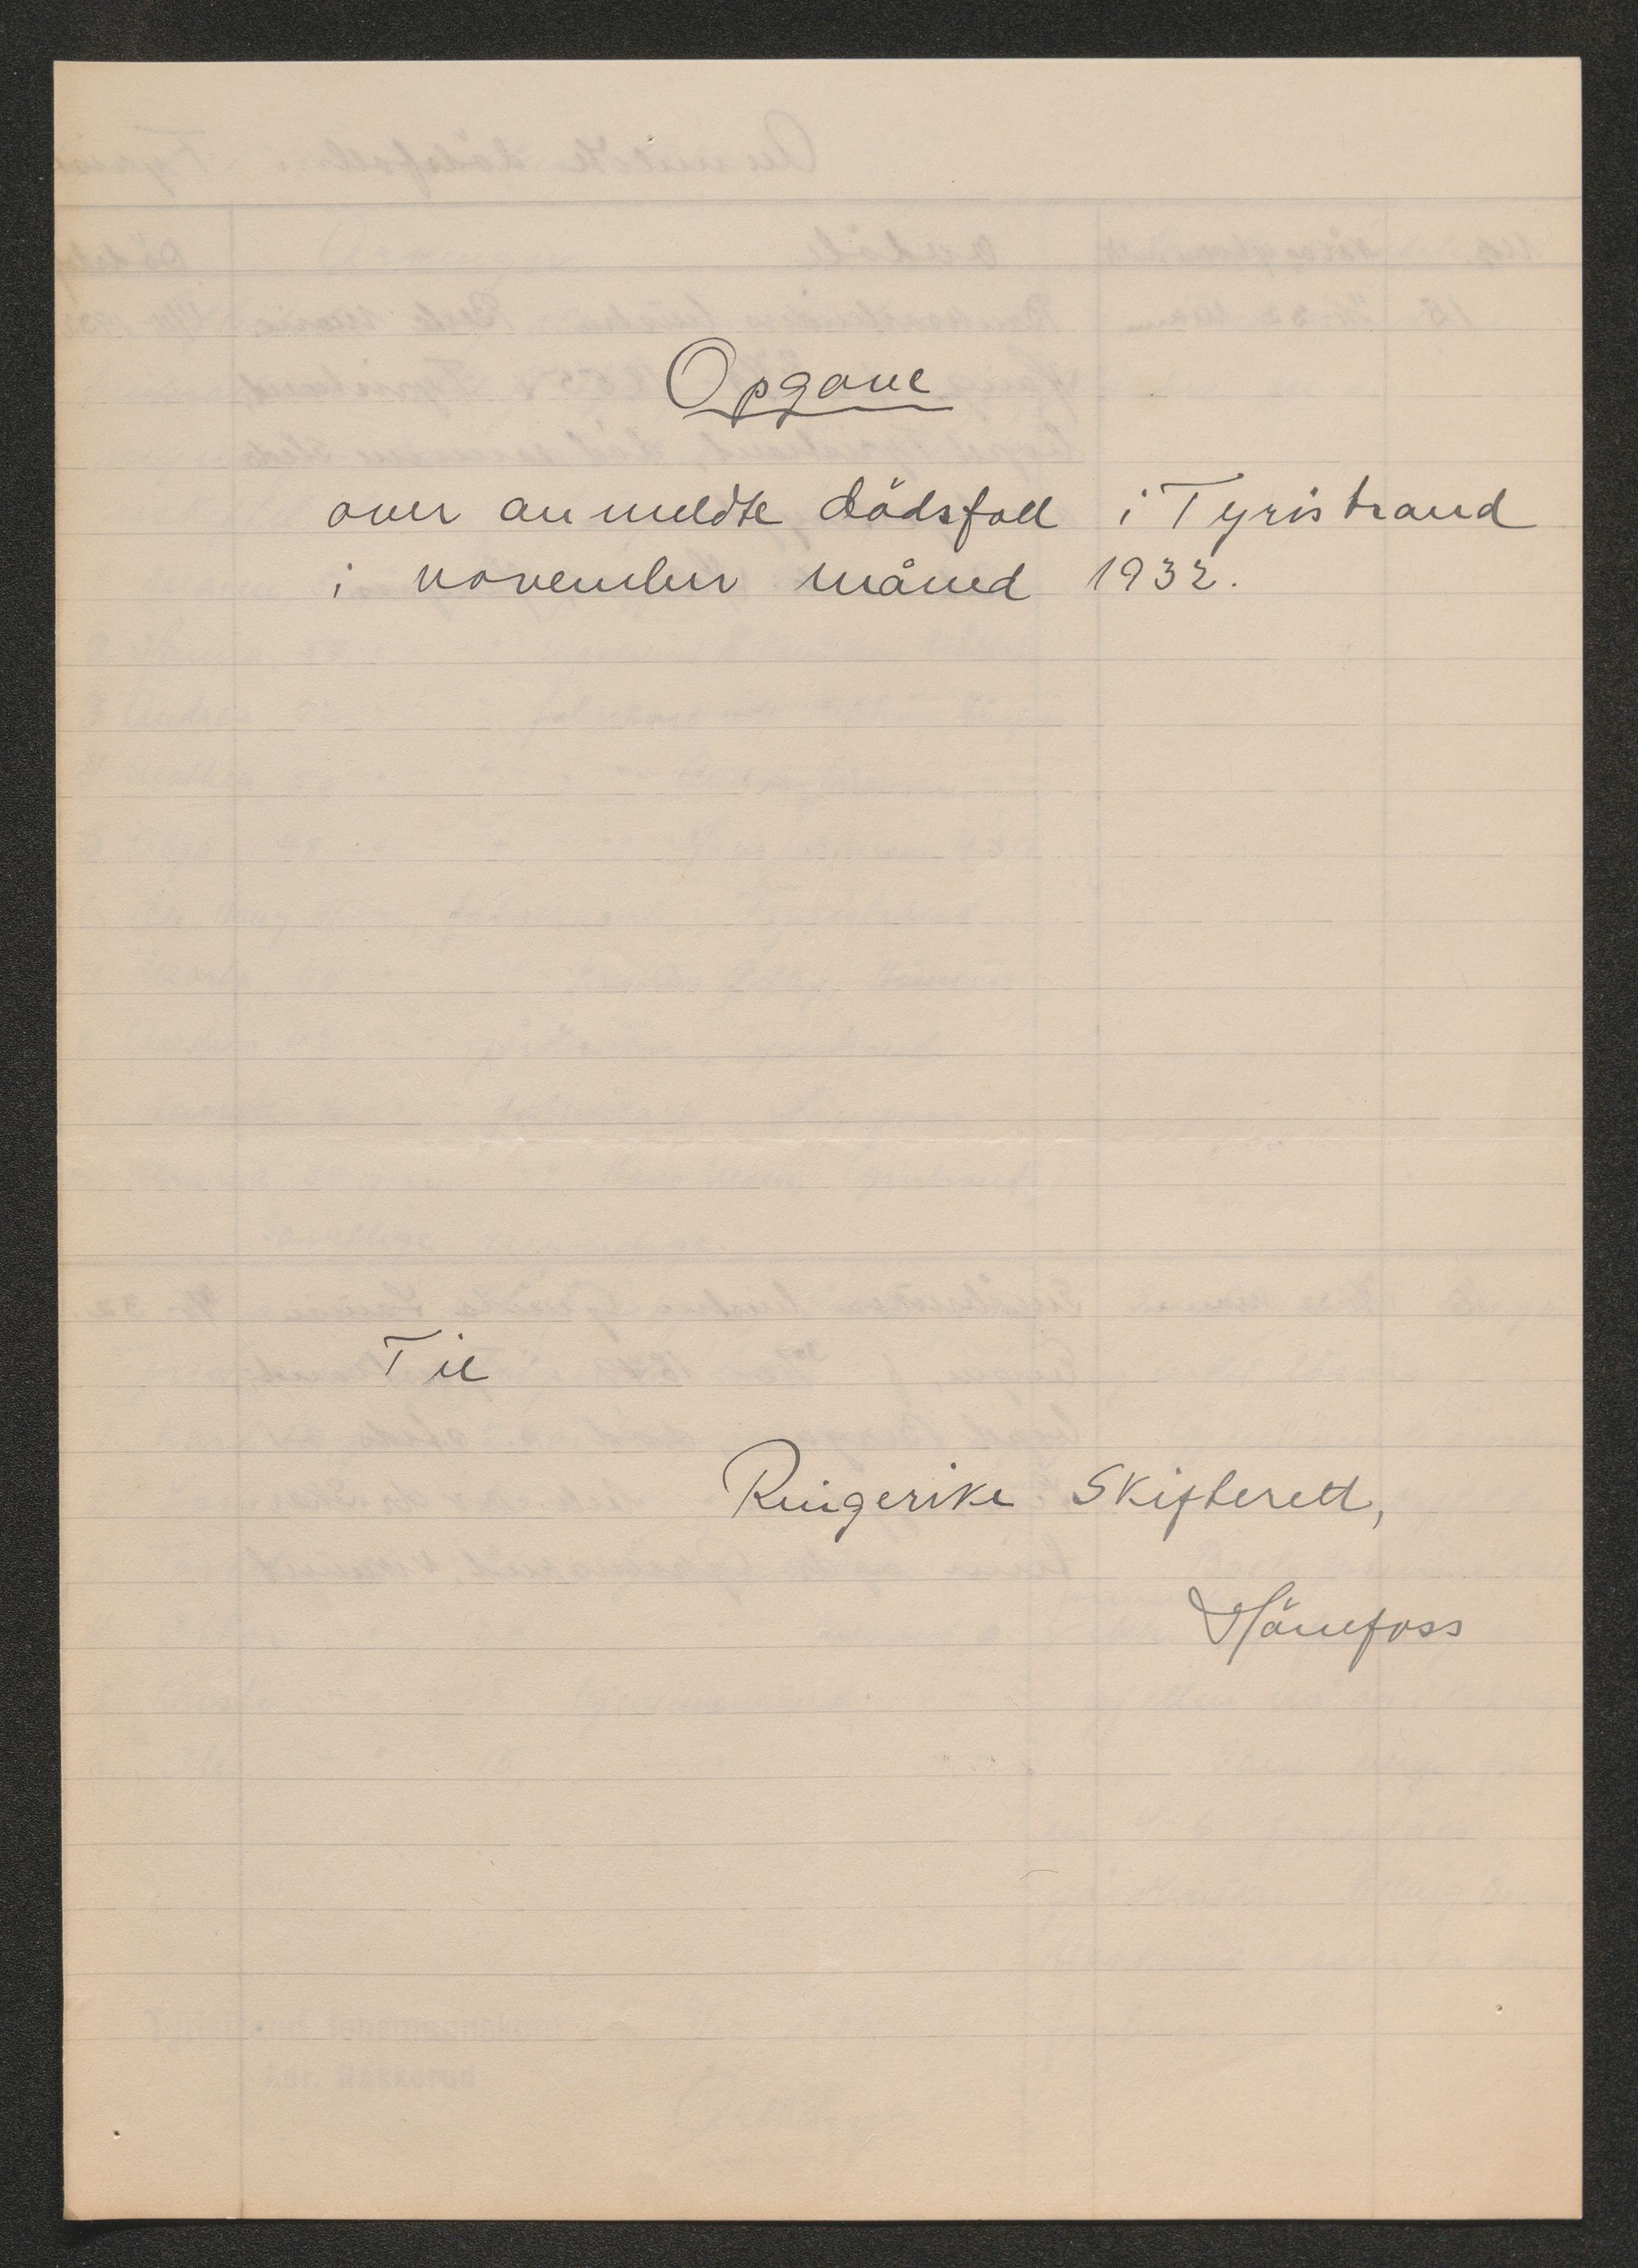 Opgave
over anmeldte dödsfall i Tyristrand
i november måned 1932.
Til
Ringerike Skifterett,
Hönefoss